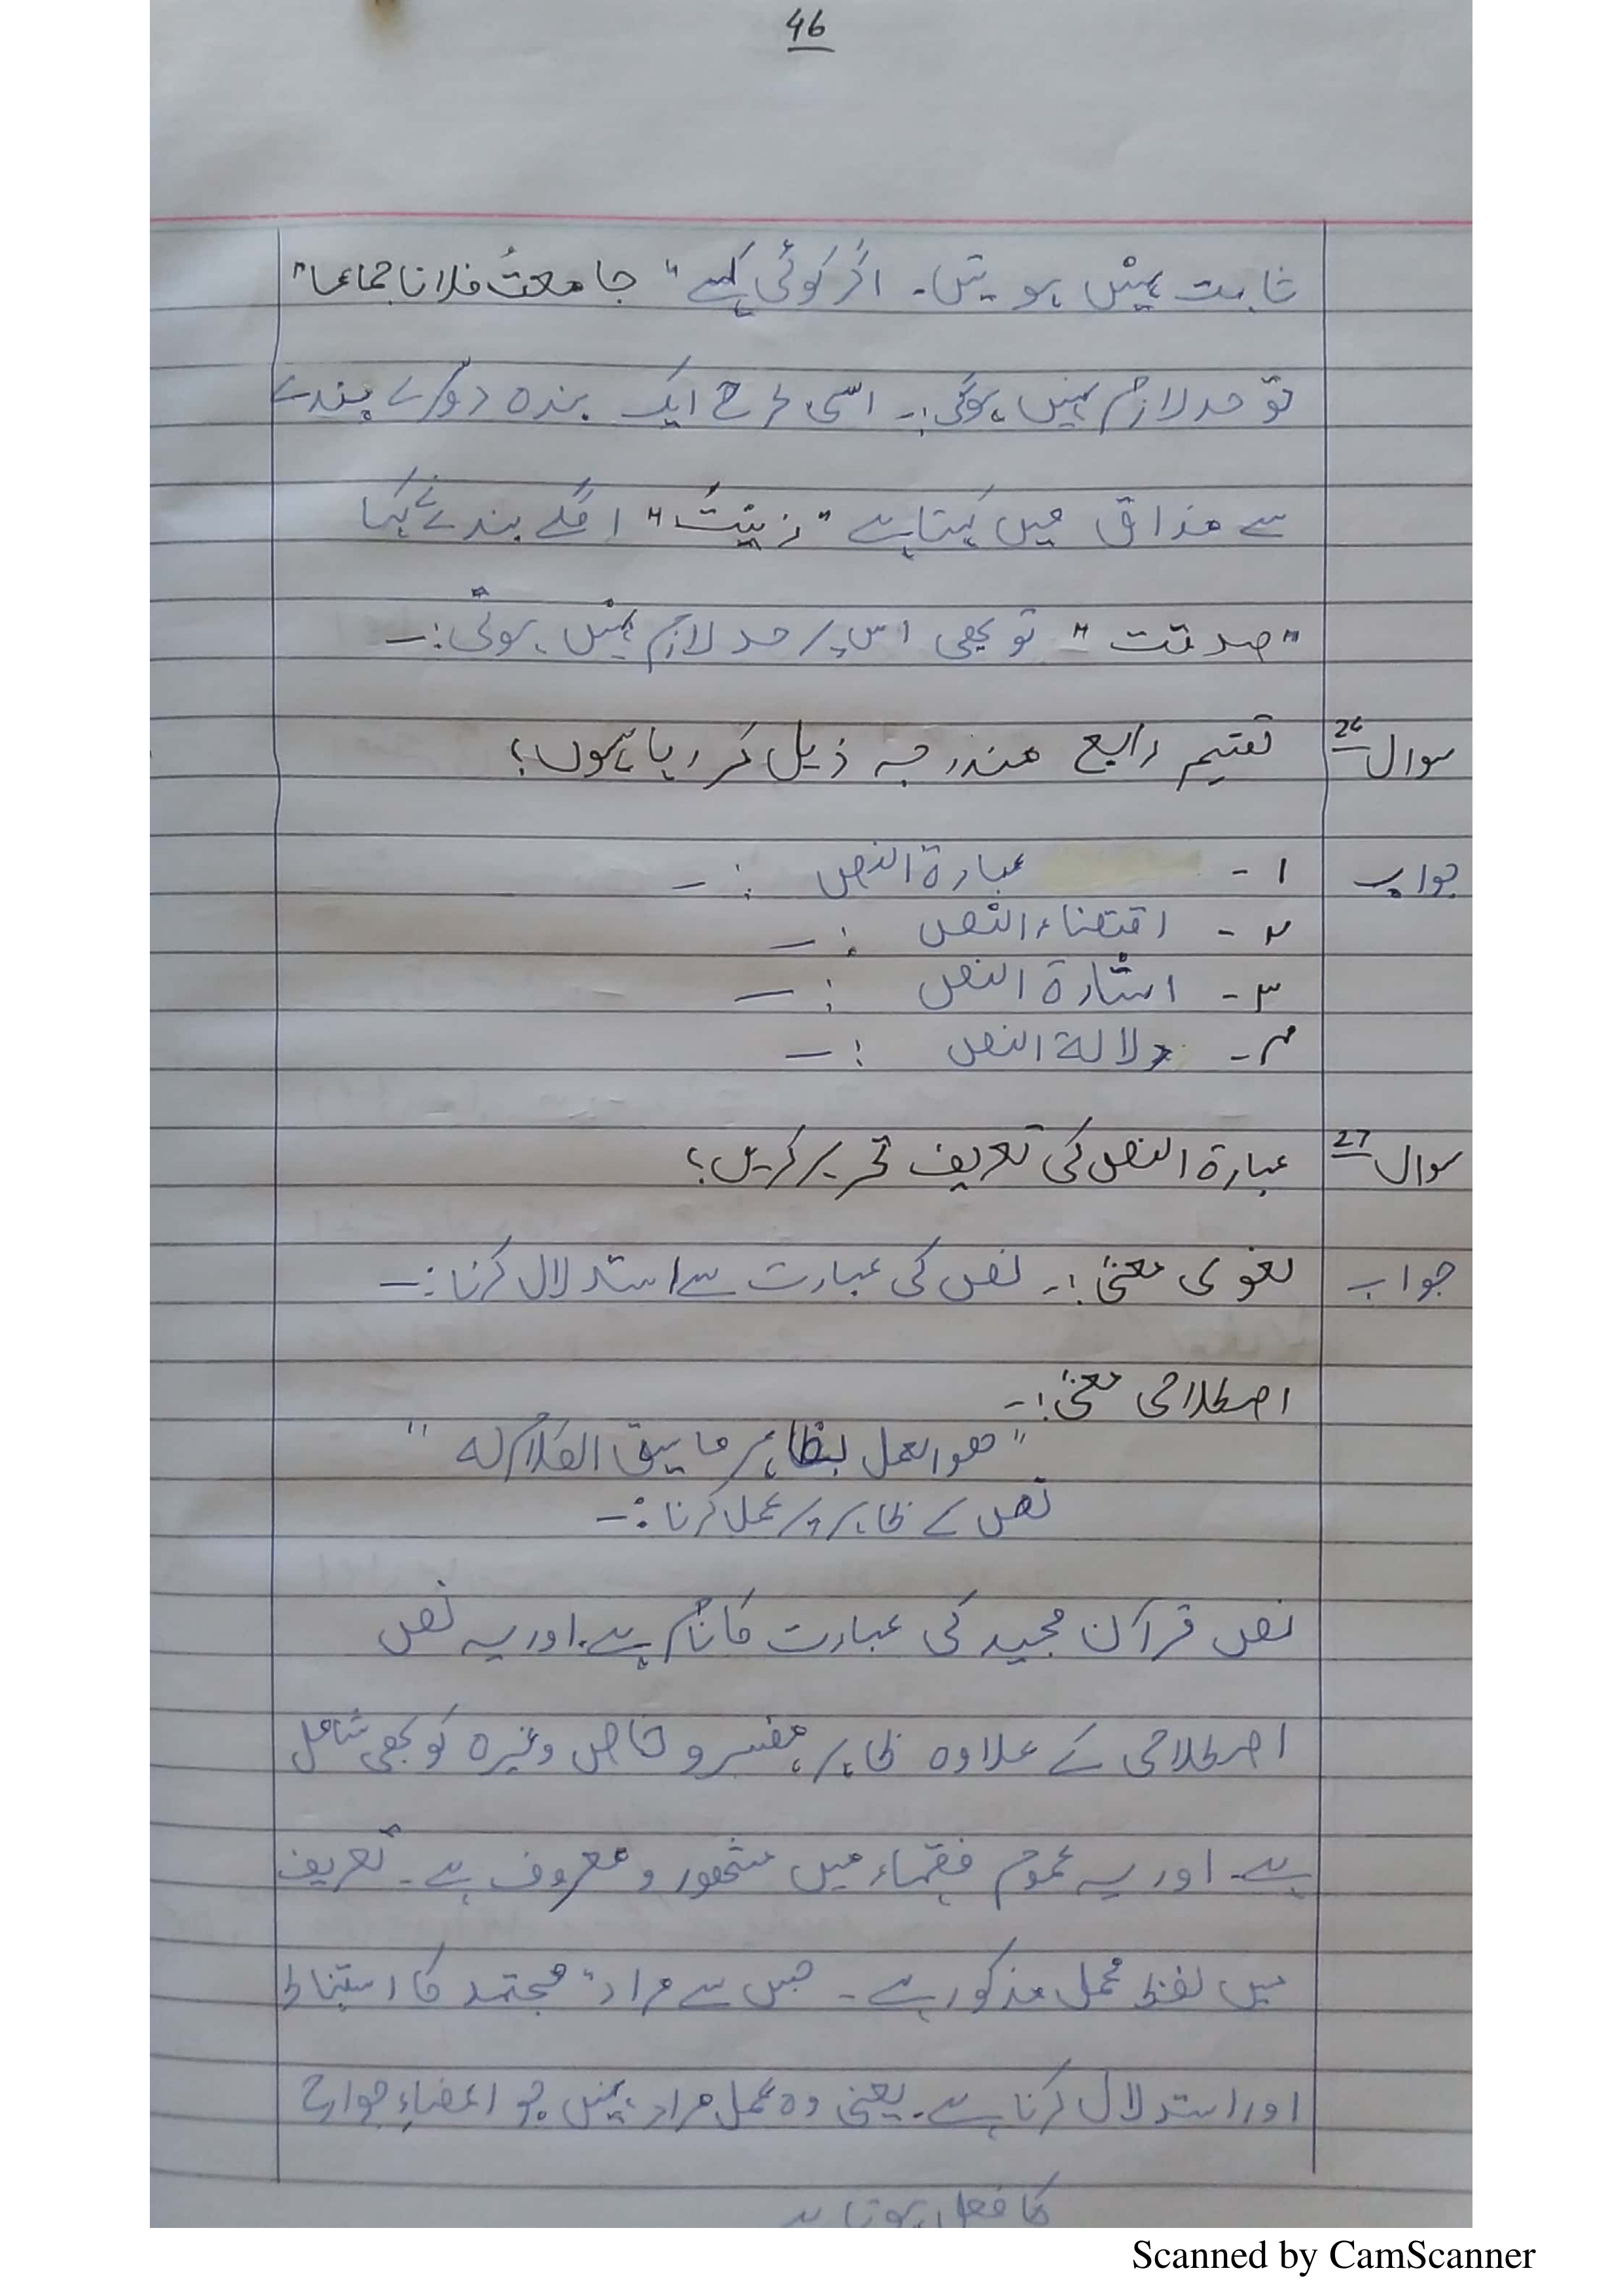 46
ثابت نہیں ہوتیں۔ اگر کوئی کہے "جامعتُ فلانا جماعا"
تو حد لازم نہیں ہوگی:۔ اسی طرح ایک بندہ دوسرے بندے
سے مذاق میں کہتا ہے "زنیتُ" اگلے بندے نے کہا
"صدقت" تو بھی اس پر حد لازم نہیں ہوگی:۔
سوال 26 تقسیم رابع مندرجہ ذیل کر رہا ہوں؟
جواب ١- عبارة النص :۔
٢- اقتضاء النص :۔
٣- اشارة النص :۔
٤- دلالة النص :۔
سوال 27 عبارة النص کی تعریف تحریر کریں؟
جواب لغوی معنیٰ:۔ نص کی عبارت سے استدلال کرنا:۔
اصطلاحی معنیٰ:۔
"ھو العمل بظاہر ما سیق الکلام لہ"
نص کے ظاہر پر عمل کرنا:۔
نص قرآن مجید کی عبارت کا نام ہے۔ اور یہ نص
اصطلاحی کے علاوہ ظاہر، مفسر و خاص وغیرہ کو بھی شامل
ہے۔ اور یہ عموم فقہاء میں مشھور و معروف ہے۔ تعریف
میں لفظ عمل مذکور ہے۔ جس سے مراد مجتھد کا استنباط
اور استدلال کرنا ہے۔ یعنی وہ عمل مراد نہیں جو اعضاءِ جوارح
کا فعل ہوتا ہے
Scanned by CamScanner